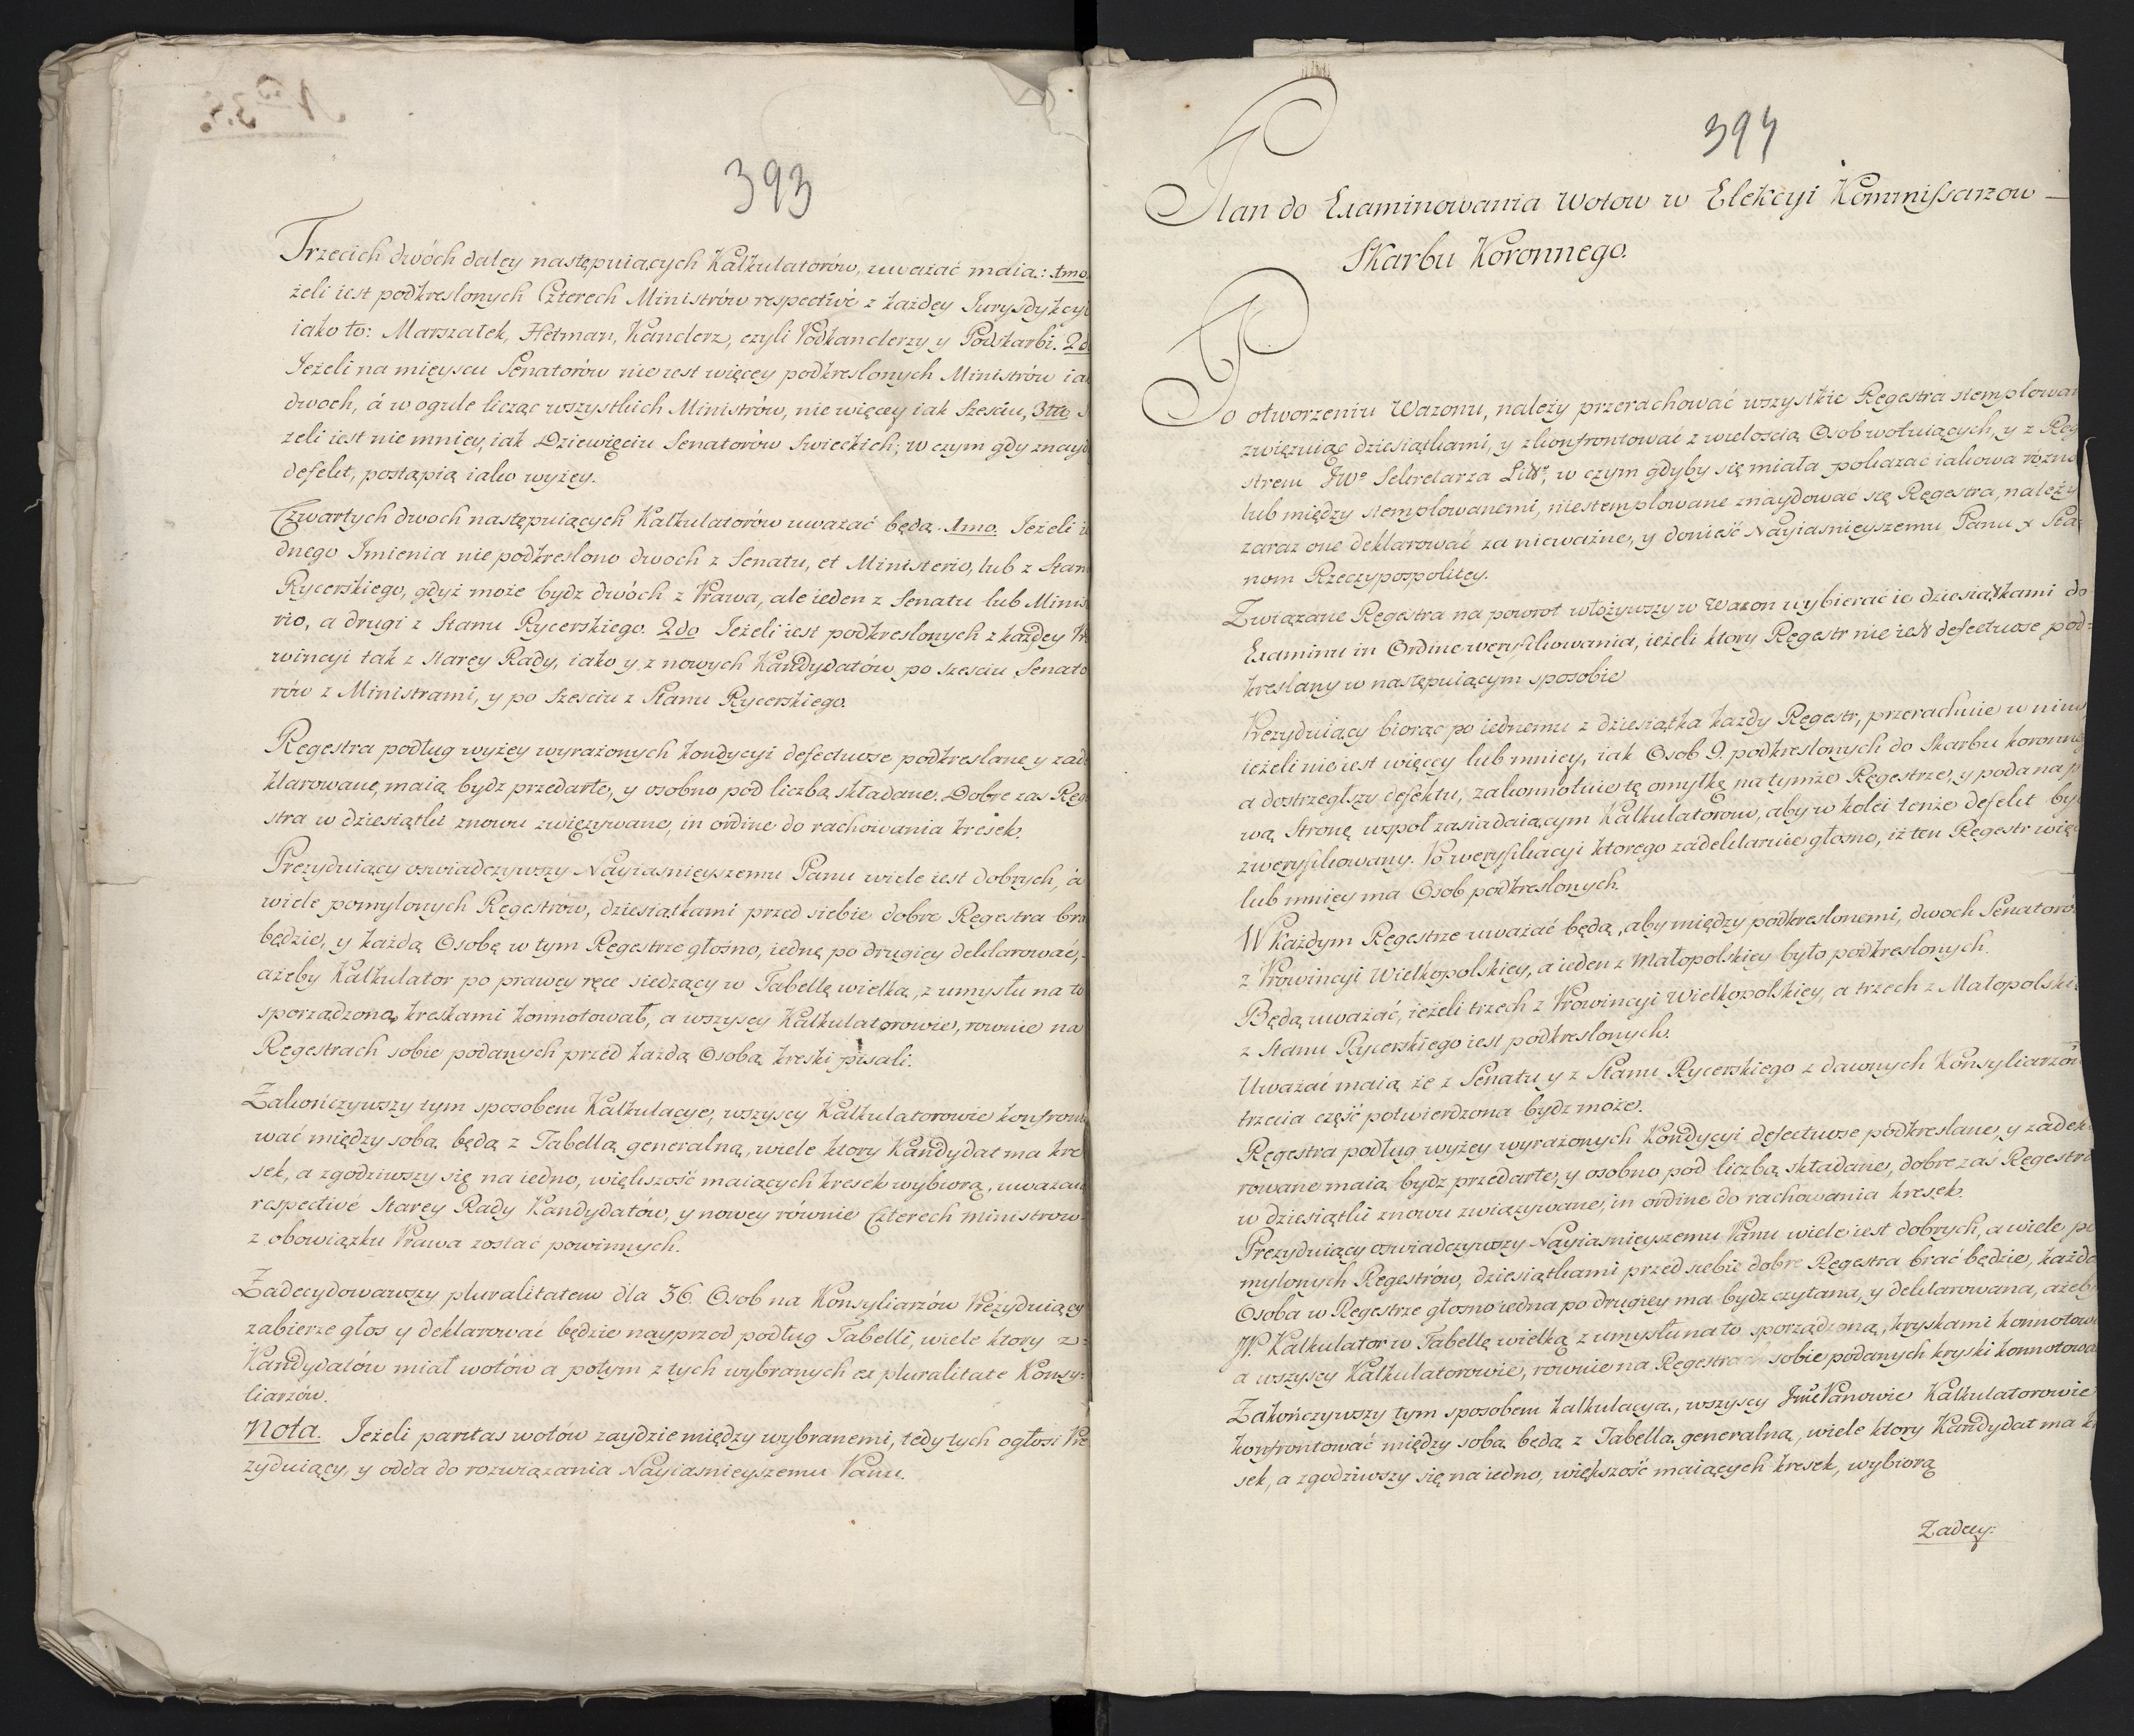 393
Trzecich dwóch daley następuiących Kalkulatorów, uważać maią: 1mo
żeli iest podkreslonych Czterech Ministrów respectivè z każdey Jurysdykcyi
iako to: Marszałek, Hetman, Kanclerz, czyli Podkanclerzy y Podskarbi. 2d
Jeżeli na mieyscu Senatorów nie iest więcey podkreslonych Ministrów iak
dwoch, á w ogule licząc wszystkich Ministrów, nie więcey iak Szesciu, 3tio
żeli iest nie mniey, iak Dziewięciu Senatorów Swieckich; w czym gdy znayd
defekt, postąpią iako wyżey.
Czwartych dwoch następuiących Kalkulatorów uważać będą. 1mo. Jeżeli ie
dnego Imienia nie podkreslono dwoch z Senatu, et Ministerio, lub z Stan
Rycerskiego, gdyż może bydz dwóch z Prawa, ale ieden z Senatu lub Minis
rio, a drugi z Stanu Rycerskiego. 2do Jeżeli iest podkreslonych z każdey Pr
wincyi tak z Starey Rady, iako y z nowych Kandydatów po szesciu Senato
rów z Ministrami, y po Szesciu z Stanu Rycerskiego.
Regestra podług wyżey wyrażonych kondycyi defectuose podkreslane y zade
klarowane, maią bydz przedarte, y osobno pod liczbą składane. Dobre zas Rege
stra w dziesiątki znowu zwięzywane, in ordine do rachowania kresek.
Prezyduiący oswiadczywszy Nayiasnieyszemu Panu wiele iest dobrych, á
wiele pomylonych Regestrów, dziesiątkami przed siebie dobre Regestra bra
będzie, y każdą Osobę w tym Regestrze głosno, iednę po drugiey deklarować,
ażeby Kalkulator po prawey ręce siedzący w Tabellę wielką, z umysłu na to
sporządzoną, kreskami konnotował, a wszyscy Kalkulatorowie, rownie na
Regestrach sobie podanych przed każdą Osobą kreski pisali.
Zakończywszy tym sposobem Kalkulacye, wszyscy Kalkulatorowie konfronto
wać między sobą będą z Tabellą generalną, wiele ktory Kandydat ma kre
sek, a zgodziwszy się na iedno, większość maiących kresek wybiorą, uważaią
respectivè Starey Rady Kandydatów, y nowey równie Czterech ministrow
z obowiązku Prawa zostać powinnych.
Zadecydowawszy pluralitatem dla 36. Osob na Konsyliarzów Prezyduiący
zabierze głos y deklarować będzie nayprzod podług Tabelli, wiele ktory z
Kandydatów miał wotów a potym z tych wybranych ex pluralitate Konsy=
liarzów.
Nota. Jeżeli paritas wotów zaydzie między wybranemi, tedy tych ogłosi Pre
zyduiący, y odda do rozwiązania Nayiasnieyszemu Panu.
394
Plan do Examinowania Wotow w Elekcyi Kommissarzow
Skarbu Koronnego.
Po otworzeniu Wazonu, należy przerachować wszystkie Regestra stemplowan
zwięzuiąc dziesiątkami, y zkonfrontować z wielością Osob wotuiących, y z Reg
strem JWo Sekretarza Litt., w czym gdyby się miała pokazać iakowa rożno
lub między stemplowanemi, niestemplowane znaydować się Regestra, należy
zaraz one deklarować za nieważne, y donieść Nayiasnieyszemu Panu y Sta
nom Rzeczypospolitey.
Związane Regestra na powrot włożywszy w Wazon wybierać ie dziesiątkami do
Examinu in Ordine weryfikowania, ieżeli ktory Regestr nie iest defectuose pod=
kreslany w następuiącym sposobie
Prezyduiący biorąc po iednemu z dziesiątka każdy Regestr, przerachuie w nim,
ieżeli nie iest więcey lub mniey, iak Osob 9. podkreslonych do Skarbu koronne
a dostrzegłszy defektu, zakonnotuie tę omyłkę na tymże Regestrze, y poda na p
wą Stronę wspoł zasiadaiącym Kalkulatorom, aby w kolei tenże defekt był
zweryfikowany. Po weryfikacyi ktorego zadeklaruie głosno, iż ten Regestr więc
lub mniey ma Osob podkreslonych.
W Każdym Regestrze uważać będą, aby między podkreslonemi, dwoch Senatoró
z Prowincyi Wielkopolskiey, a ieden z Małopolskiey było podkreslonych.
Będą uważać, ieżeli trzech z Prowincyi Wielkopolskiey, a trzech z Małopolski
z Stanu Rycerskiego iest podkreslonych.
Uważać maią że z Senatu y z Stanu Rycerskiego z dawnych Konsyliarzów
trzecia część potwierdzona bydz może.
Regestra podług wyżey wyrażonych Kondycyi defectuose podkreslane, y zadekl
rowane maią bydz przedarte, y osobno pod liczbą składane, dobre zaś Regestra
w dziesiątki znowu związywane, in ordine do rachowania kresek.
Prezyduiący oswiadczywszy Nayiasnieyszemu Panu wiele iest dobrych, a wiele po
mylonych Regestrów, dziesiątkami przed siebie dobre Regestra brać będzie, każda
Osoba w Regestrze głosno iedna po drugiey ma bydz czytana, y deklarowana, ażeby
JP. Kalkulator w Tabellę wielką z umysłu na to sporządzoną, kryskami konnotow
a wszyscy Kalkulatorowie, rownie na Regestrach sobie podanych kryski konnotowa
Zakończywszy tym sposobem kalkulacyą, wszyscy Panowie Kalkulatorowie
konfrontować między sobą będą z Tabellą generalną, wiele ktory Kandydat ma kr
sek, a zgodziwszy się na iedno, większość maiących kresek, wybiorą
Zadecy: